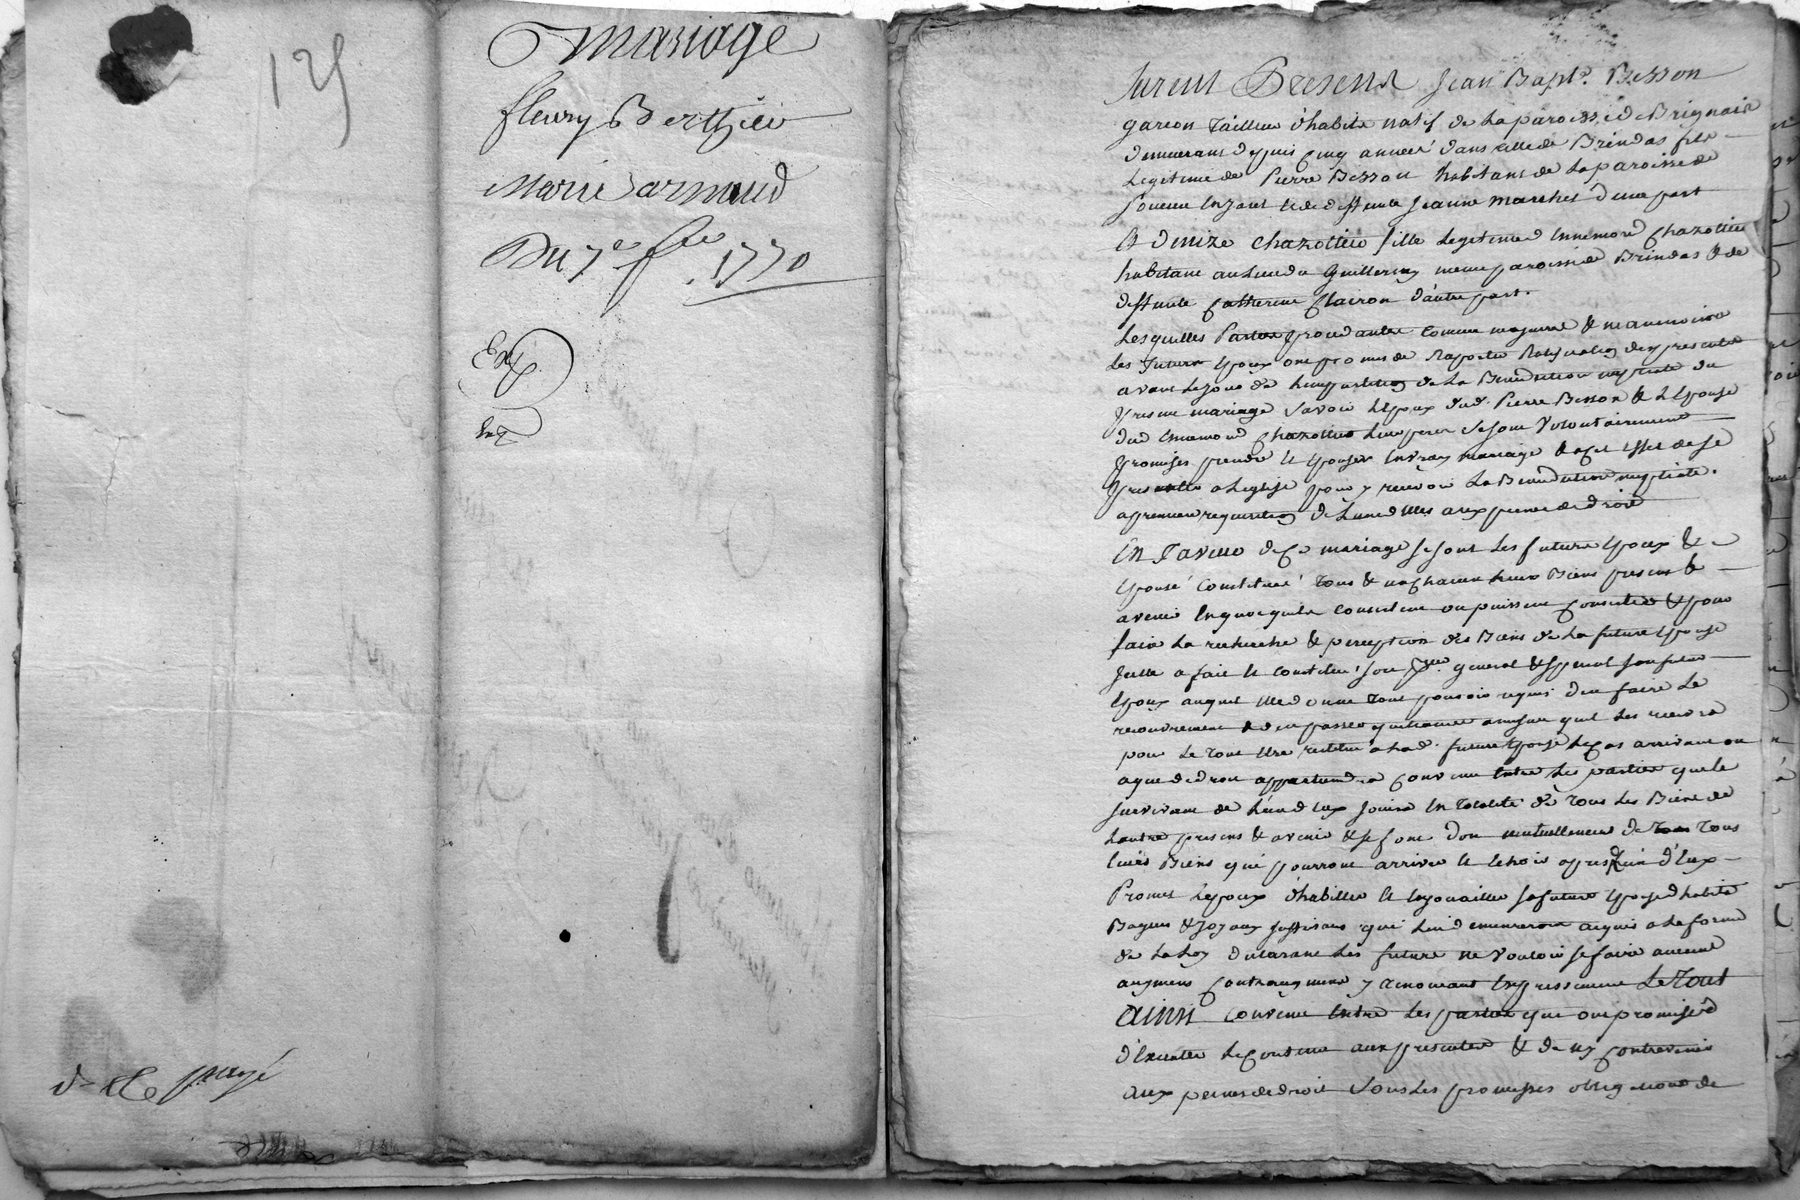 125
mariage
fleury Berthier
Marie armand
Du 7e fre 1770
Exp
Ex
de xx payé
furent Presens Jean Bapte. Besson
garcon Tailleur d'habits natif de la paroisse de Brignais
demeurant depuis cinq années dans celle de Brindas fils
Legitime de Pierre Besson habitant de la paroisse de
et de deffunte Jeanne marchet d'une part
Et denize chazottier fille Legitime d'ennemond chazottier
habitant au Lieu du Guillermy meme paroisse de Brindas & de
deffunte Catherine Clairon d'autre part.
Lesquelles Parties procedantes comme majeures & neanmoins
les futurs Epoux ont promis de Raporter Ratification des presentes
avant le jour de l'impartition de la Benediction nuptiale du
present mariage savoir L'Epoux dud. Pierre Besson & L'Epouse
dud Ennemond Chazottier leurs peres se sont Volontairement
promises prendre et Epouser en vray mariage & a cet effet de se
presenter a L'eglise pour y recevoir La Benediction nuptiale.
a premiere requisition de L'une d'elles aux peines de droit
En Faveur de ce mariage se sont les futurs Epoux & e
Epouse Constitués Tous & un chacun leurs Biens presens &
avenir en quoy qu'ils consistent ou puissent consister & pour
faire La recherche & perception des Biens de La future Epouse
Icelle a fait et constitué son pr general & special son futur
Epoux auquel Elle donne Tout pouvoir requis d'en faire Le
recouvrement & d'en passer quittances a mesure qu'il Les recevra
pour Le Tout Etre restitué a Lad. future Epouse Le cas arrivant ou
a qui de droit appartiendra Convenu Entre Les parties que le
survivant de L'un d'eux Jouira En Totalité de Tous Les Biens de
L'autre presens & avenir & se font don mutuellement de Tous
leurs Biens qui pourront arriver et Echoir apres d'eux
Promet L'epoux d'habiller Et enjouailler sa future Epouse d'habits
Bagues & Joyaux suffisans qui Lui demeureront acquis a La forme
de La Loy declarant Les futurs ne Vouloir se faire aucuns
augment contraugment y renoncant Expressement Le Tout
ainsi Convenu Entre Les parties qui ont promis
d'Executer Le contenu aux presentes & de n'y contrevenir
aux peines de droit Sous Les promesses obligations de